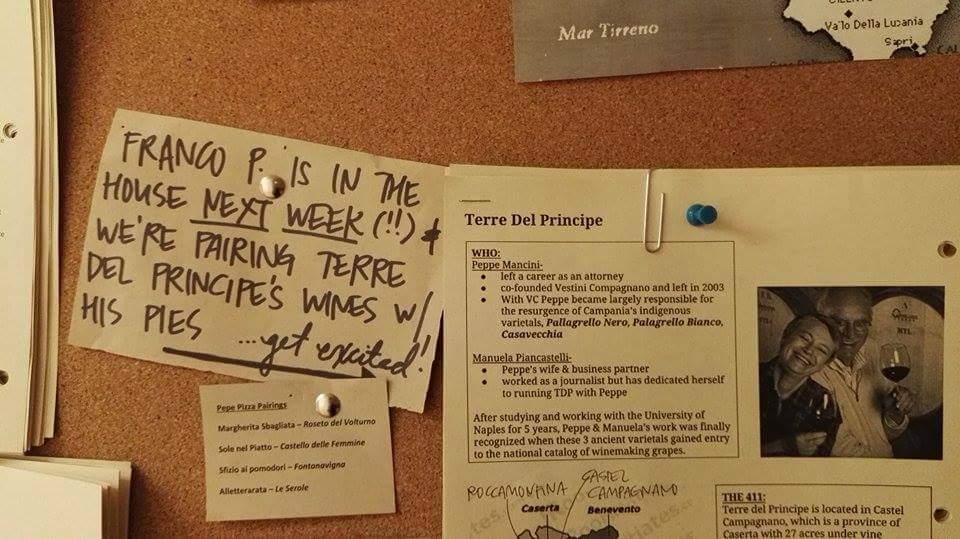 Mar Tirreno
Vallo Della Lucania
Sapri
FRANCO P. IS IN THE
HOUSE NEXT WEEK (!!) &
WE'RE PAIRING TERRE
DEL PRINCIPE'S WINES W/
HIS PIES
...get excited!
Pepe Pizza Pairings
Margherita Sbagliata – Roseto del Volturno
Sole nel Piatto – Castello delle Femmine
Sfizio ai pomodori – Fontanavigna
Alletterarata – Le Serole
Terre Del Principe
WHO:
Peppe Mancini-
• left a career as an attorney
• co-founded Vestini Compagnano and left in 2003
• With VC Peppe became largely responsible for
the resurgence of Campania's indigenous
varietals, Pallagrello Nero, Palagrello Bianco,
Casavecchia
Manuela Piancastelli-
• Peppe's wife & business partner
• worked as a journalist but has dedicated herself
to running TDP with Peppe
After studying and working with the University of
Naples for 5 years, Peppe & Manuela's work was finally
recognized when these 3 ancient varietals gained entry
to the national catalog of winemaking grapes.
ROCCAMONFINA
CASTEL
CAMPAGNANO
Caserta
Benevento
THE 411:
Terre del Principe is located in Castel
Campagnano, which is a province of
Caserta with 27 acres under vine